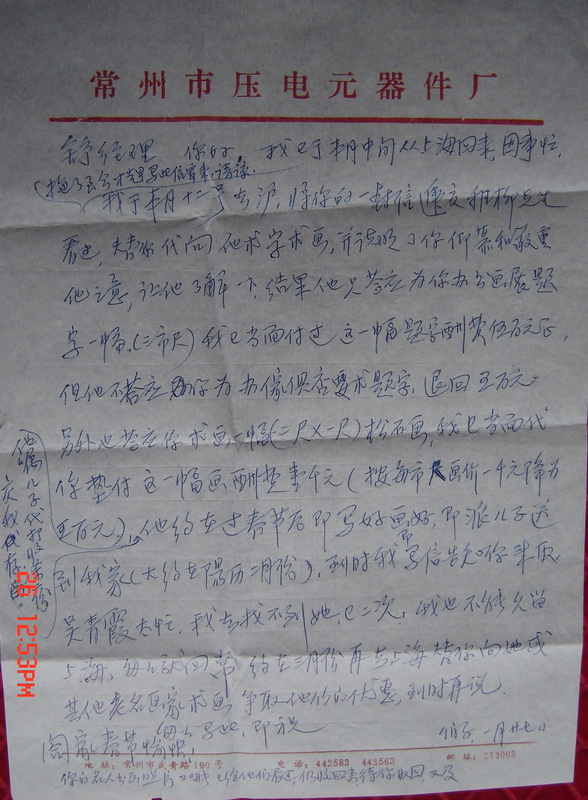 常州市压电元器件厂
舒经理 你好, 我已于本月中旬从上海回来,因事忙,
拖了至今才提笔写此信寄来,请谅。
我于本月十二号去沪,将你的一封信递交稚柳兄
看过,夫替你代向他求字求画,并说明了你仰慕和敬重
他之意,让他了解一下,结果他只答应为你办书画展题
字一幅(三市尺)我已当面付过这一幅题字酬费伍百元正,
但他不答应你为办傢俱店要求题字,退回五百元
另外他答应你求画一幅(二尺×一尺)松石画,我已当面代
你垫付这一幅画酬费壹千元(按每市尺画价一千元降为
五百元),他约在过春节后即写好画好,即派儿子送
到我家(大约在阳历二月份),到时我即写信告知你来取
吴青霞太忙,我去找不到她,已二次,我也不能久留
上海,匆匆就回常,约在三月份再去上海替你向她或
其他老名画家求画,争取他们的优惠,到时再说。
匆匆写此,即祝
阖家春节愉快!
一月廿七日
他嘱儿子代打收条份
交我保存。
地 址:常州市武青路190号 电 话:442583 443563 邮 编:213003
你的名人书画照片 已给他们看过,仍收回来待你取回,又及
26 12:53PM